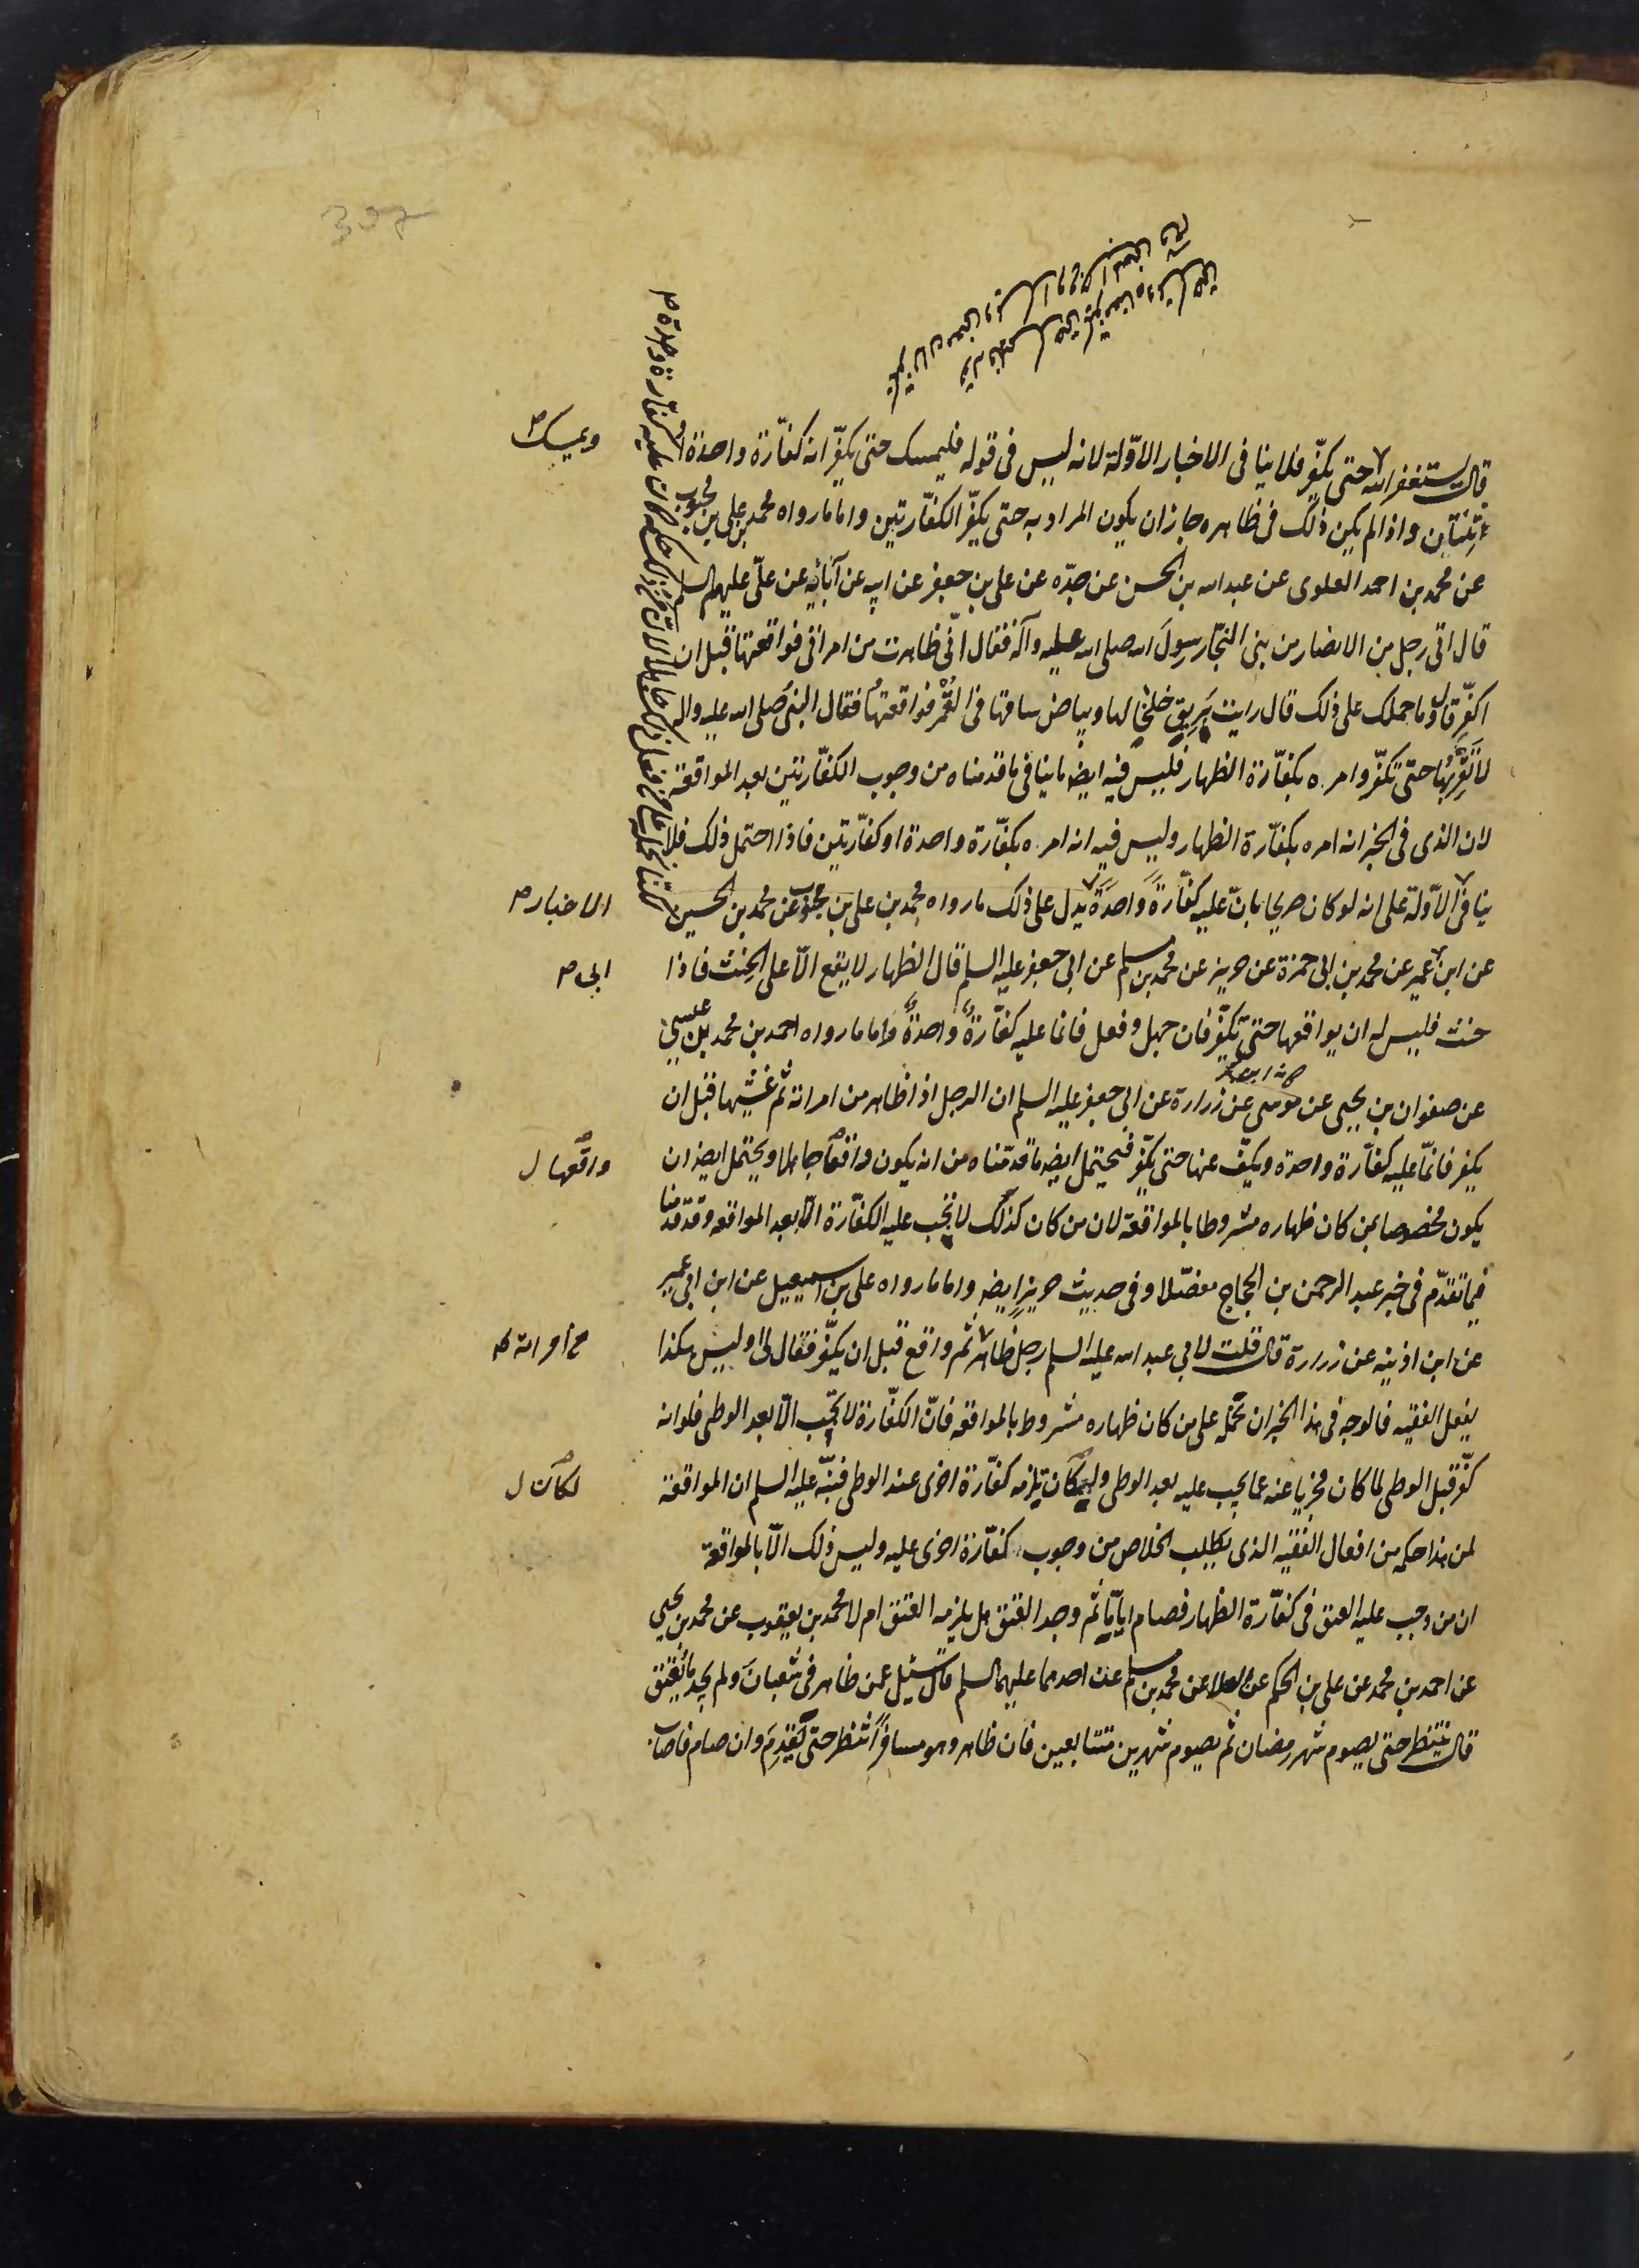 قال يستغفر الله حتى يكفّر فلا ينافى الاخبار الاوّلة لانه ليس فى قوله فليمسك حتى يكفّر انه كفّارة واحدة او
اثنتين واذا لم يكن ذلك فى ظاهره جاز ان يكون المراد به حتى يكفّر الكفّارتين واما ما رواه محمد بن على بن محبوب
عن محمد بن احمد العلوى عن عبدالله بن الحسن عن جدّه عن على بن جعفر عن ابيه عن آبائه عن علىّ عليهم السلم
قال اتى رجل من الانصار من بنى النجّار رسول الله صلى الله عليه وآله فقال انّى ظاهرت من امراتى فواقعتها قبل ان
اكفّر قال وما حملك على ذلك قال رايت بريق خلخالها وبياض ساقها فى القمر فواقعتها فقال النبى صلى الله عليه واله
لا تقربها حتى تكفّر وامره بكفّارة الظهار فليس فيه ايضا ما ينافى ما قدمناه من وجوب الكفّارتين بعد المواقعة
لان الذى فى الخبر انه امره بكفّارة الظهار وليس فيه انه امره بكفّارة واحدة او كفّارتين فاذا احتمل ذلك فلا
ينافى الاوّلة على انه لو كان صريحا بان عليه كفّارة واحدة يدل على ذلك ما رواه محمد بن على بن محبوب عن محمد بن الحسين
عن ابن عمير عن محمد بن ابى حمزة عن حريز عن محمد بن مسلم عن ابى جعفر عليه السلم قال الظهار لا يقع الّا على الحنث فاذا
حنث فليس له ان يواقعها حتى يكفّر فان جهل وفعل فانما عليه كفّارة واحدة واما ما رواه احمد بن محمد بن عيسى
عن صفوان بن يحيى عن موسى عن زرارة عن ابى جعفر عليه السلم ان الرجل اذا ظاهر من امراته ثم غشيها قبل ان
يكفر فانمّا عليه كفّارة واحدة ويكفّ عنها حتى يكفّر فيحتمل ايضه ما قدمّناه من انه يكون واقعا جاهلا ويحتمل ايضه ان
يكون مخصوصا بمن كان ظهاره مشروطا بالمواقعة لان من كان كذلك لا تجب عليه الكفّارة الّا بعد المواقعه وقد قدمنا
فيما تقدّم فى خبر عبد الرحمن بن الحجاج مفصّلا وفى حديث حريز ايضه واما ما رواه على بن اسمعيل عن ابن ابى عمير
عن ابن اذينه عن زرارة قال قلت لابى عبد الله عليه السلم رجل ظاهر ثم واقع قبل ان يكفّر فقال لى اوليس هكذا
يفعل الفقيه فالوجه فى هذا الخبر ان نحمله على من كان ظهاره مشروطا بالمواقعه فانّ الكفّارة لا تجب الّا بعد الوطى فلو انه
كفّر قبل الوطى لما كان مجزيا عنه عما يجب عليه بعد الوطى ولكان يلزمه كفّارة اخرى عند الوطى فنبّه عليه السلم ان المواقعة
لمن هذا حكمه من افعال الفقيه الذى يطلب الخلاص من وجوب كفّارة اخرى عليه وليس ذلك الّا بالمواقعة
ان من وجب عليه العتق فى كفّارة الظهار فصام ايّاما ثم وجد العتق هل يلزمه العتق ام لا محمد بن يعقوب عن محمد بن يحيى
عن احمد بن محمد عن على بن الحكم عن العلا عن محمد بن مسلم عن احدهما عليهما السلم قال سئل عمن ظاهر فى شعبان ولم يجد ما يعتق
قال ينتظر حتى يصوم شهر رمضان ثم يصوم شهرين متتابعين فان ظاهر وهو مسافر انتظر حتى يقدم وان صام فاصاب
ويمسك
الاخبار
ابى
واقعها
من امراته
لكان